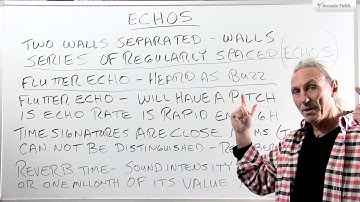 Acoustic Fields
ECHOS
TWO WALLS SEPARATED - WALLS
SERIES OF REGULARLY SPACED (ECHOS)
FLUTTER ECHO - HEARD AS BUZZ
FLUTTER ECHO - WILL HAVE A PITCH
IS ECHO RATE IS RAPID ENOUGH
TIME SIGNATURES ARE CLOSE
CAN NOT BE DISTINGUISHED -
REVERB TIME - SOUND INTENSITY
OR ONE MILLONTH OF ITS VALUE